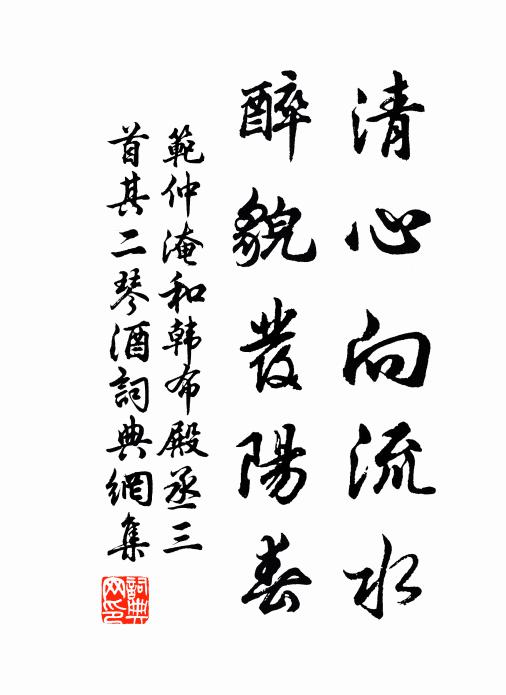 清心向流水
醉貌發陽春
範仲淹和韩布殿丞三
首其二琴酒詞典網集
詞典
网印